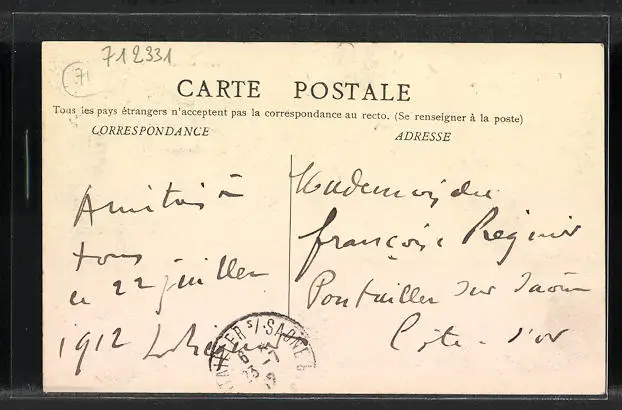 712331
71
CARTE POSTALE
Tous les pays étrangers n'acceptent pas la correspondance au recto. (Se renseigner à la poste)
CORRESPONDANCE
ADRESSE
Amitiés à
tous
le 22 juillet
1912
Mademoiselle
Françoise Régnier
Pontailler sur Saône
Côte-d'or
ER s/ SAONE